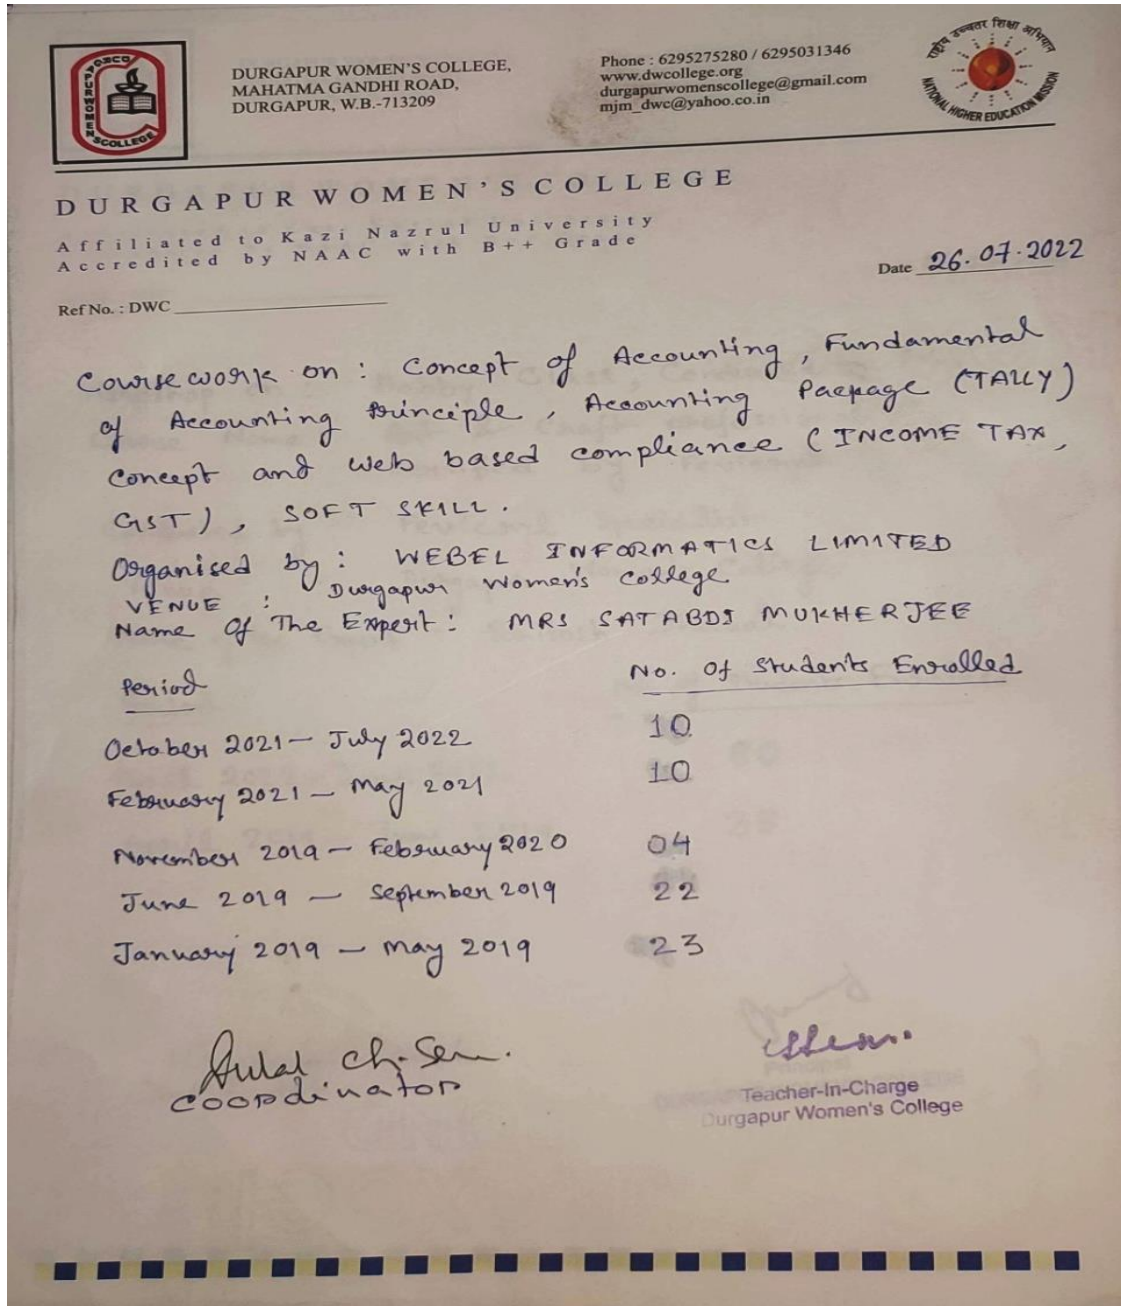 DURGAPUR WOMEN'S COLLEGE
DURGAPUR WOMEN'S COLLEGE,
MAHATMA GANDHI ROAD,
DURGAPUR, W.B.-713209
Phone : 6295275280 / 6295031346
www.dwcollege.org
durgapurwomenscollege@gmail.com
mjm_dwc@yahoo.co.in
राष्ट्रीय उच्चतर शिक्षा अभियान
NATIONAL HIGHER EDUCATION MISSION
DURGAPUR WOMEN'S COLLEGE
Affiliated to Kazi Nazrul University
Accredited by NAAC with B++ Grade
Date 26.07.2022
Ref No. : DWC
Coursework on : Concept of Accounting, Fundamental
of Accounting Principle, Accounting Package (TALLY)
Concept and Web based compliance (INCOME TAX,
GST), SOFT SKILL.
Organised by : WEBEL INFORMATICS LIMITED
VENUE : Durgapur Women's College
Name Of The Expert : MRS SATABDI MUKHERJEE
Period No. Of Students Enrolled
October 2021 - July 2022 10
February 2021 - May 2021 10
November 2019 - February 2020 04
June 2019 - September 2019 22
January 2019 - May 2019 23
Dulal Ch. Sen.
Coordinator
Teacher-In-Charge
Durgapur Women's College